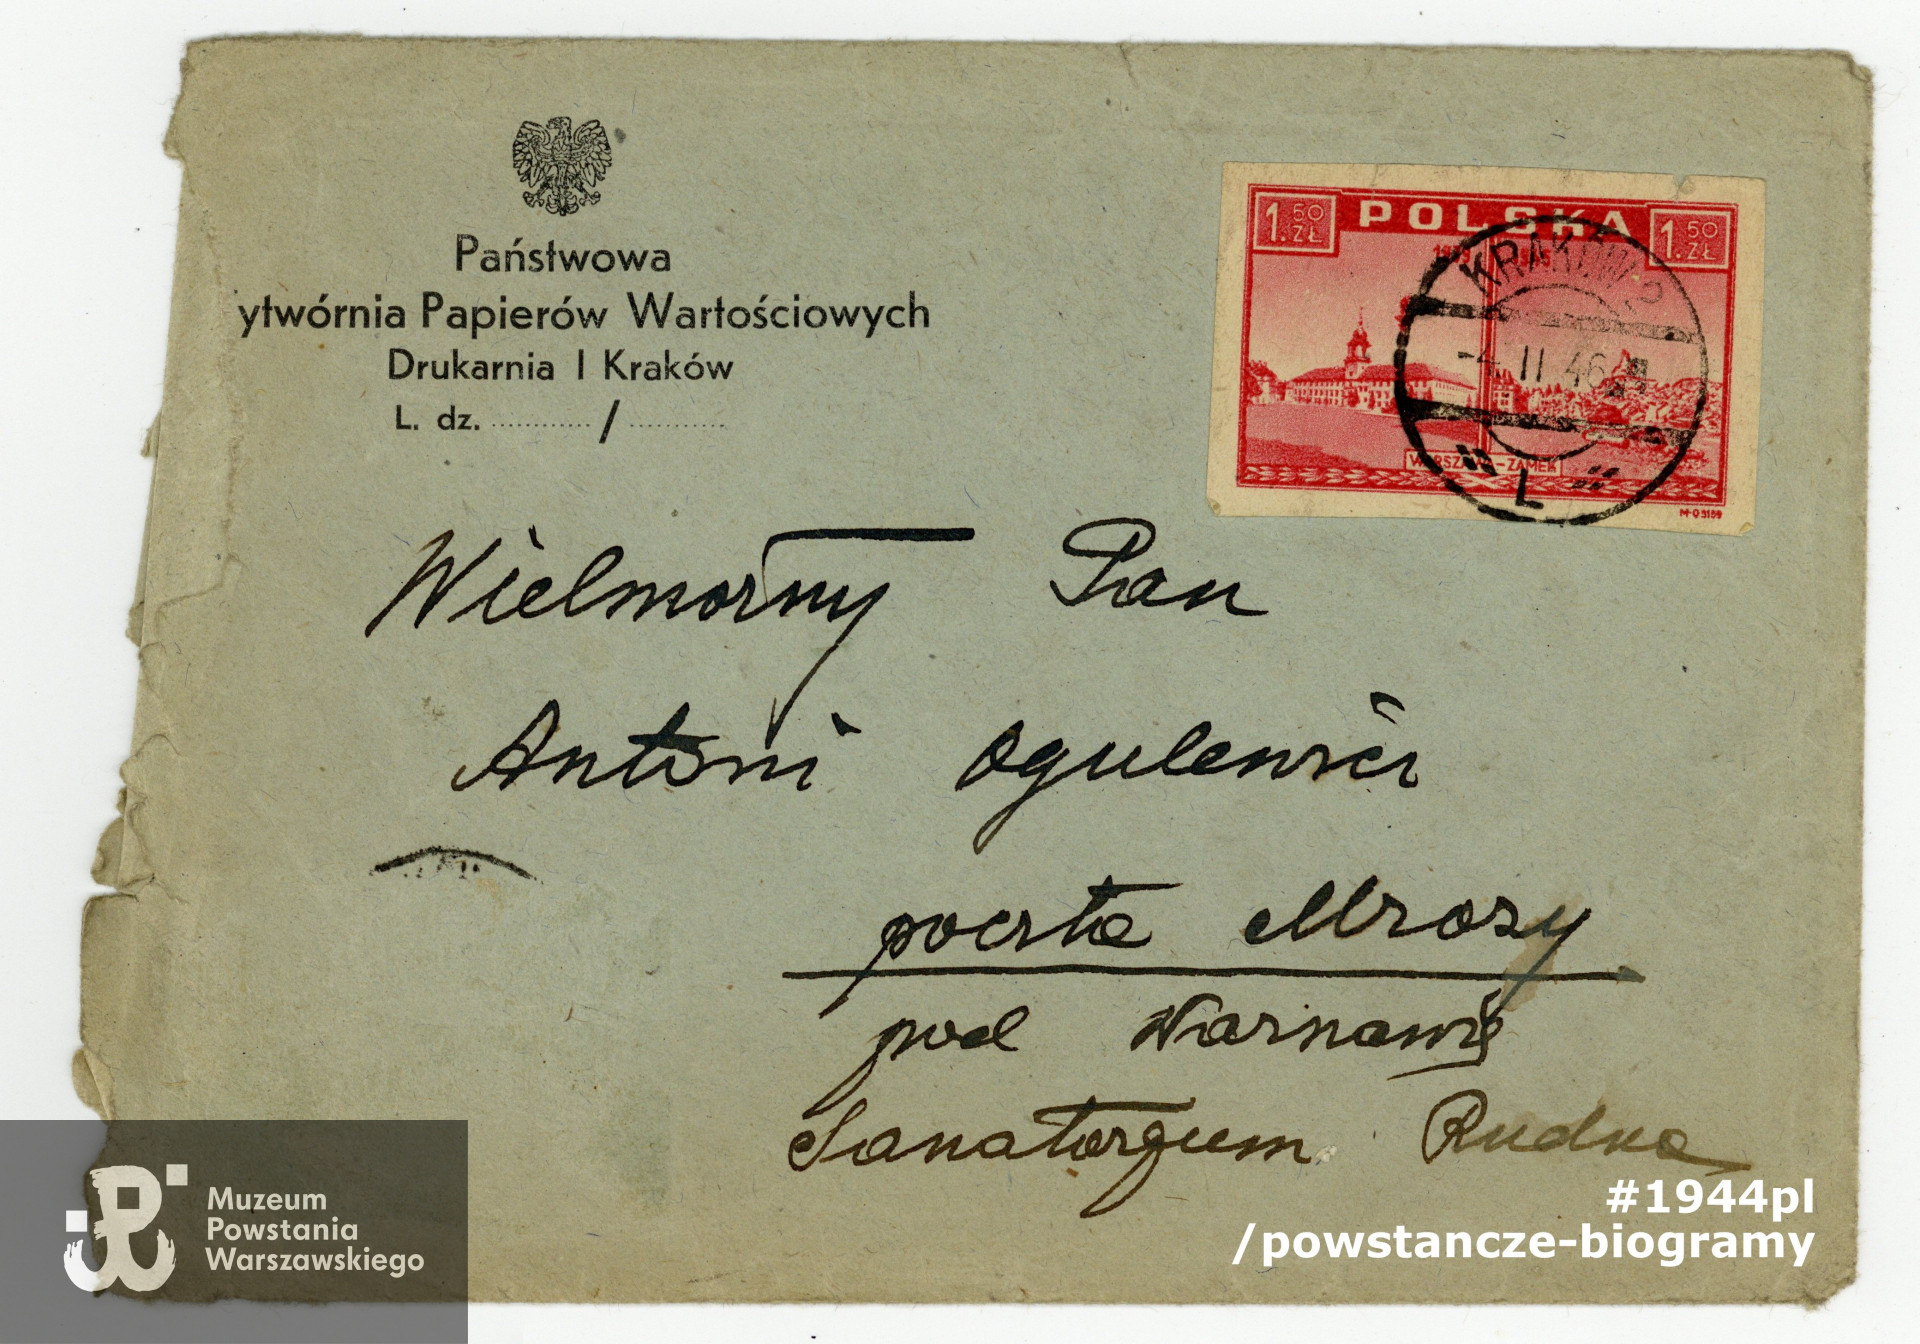 Państwowa
ytwórnia Papierów Wartościowych
Drukarnia I Kraków
L. dz. ............ / ............
1.50 ZŁ POLSKA 1.50 ZŁ
KRAKÓW 2
-4. II 46
WARSZAWA-ZAMEK
L
Wielmożny Pan
Antoni
poczta Mrozy
pod Warszawą
Sanatorjum Rudka
Muzeum
Powstania
Warszawskiego
#1944pl
/powstancze-biogramy